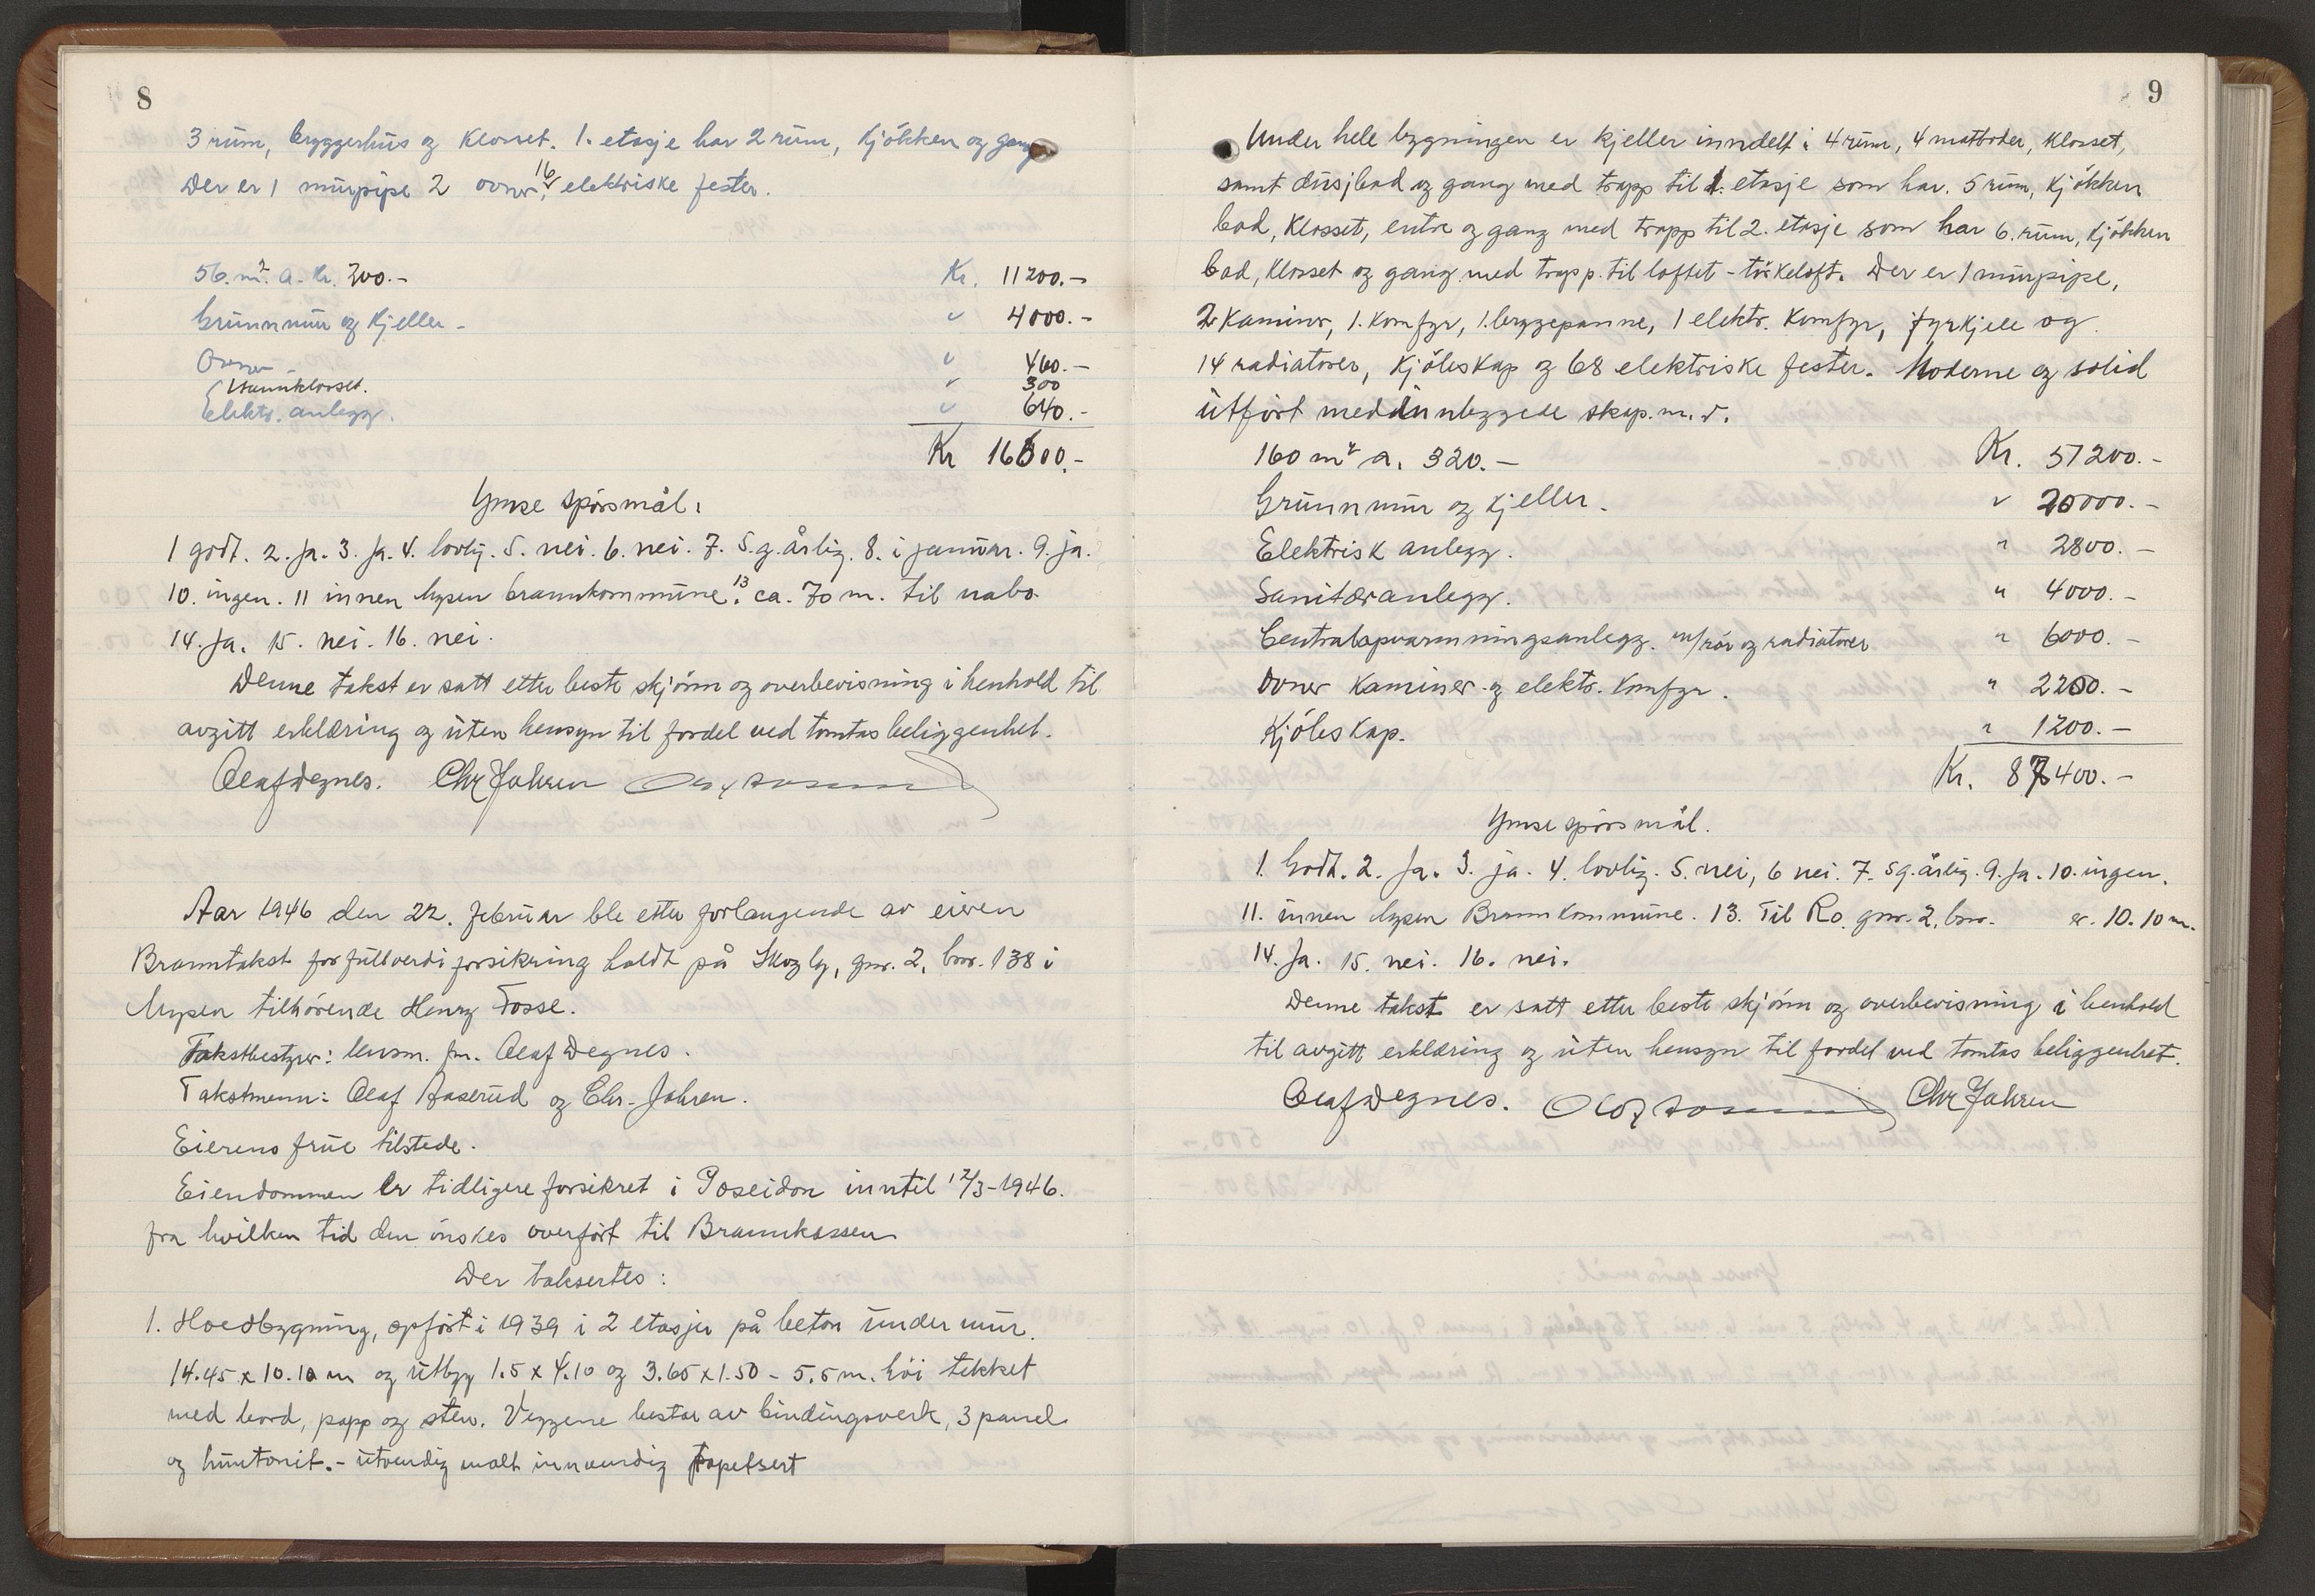 8
3 rum, bryggerhus og klosset. 1. etasje har 2 rum, kjökken og gang
Der er 1 murpipe 2 ovner, 16 elektriske fester.
56. m². a. kr. 200.- Kr. 11200.-
Grunnmur og kjeller - " 4000.-
Ovner - " 460.-
Vannklosset. " 300
Elektr. anlegg. " 640.-
Kr 16600.-
Ymse spörsmål.
1 godt. 2. Ja. 3. Ja. 4. lovlig. 5. nei. 6. nei. 7. 5.g. årlig. 8. i januar. 9. ja.
10. ingen. 11 innen Mysen brannkommune. 13 ca. 70 m. til nabo
14. Ja. 15. nei. 16. nei.
Denne takst er satt etter beste skjönn og overbevisning i henhold til
avgitt erklæring og uten hensyn til fordel ved tomtas beliggenhet.
Olaf Degnes. Chr Jahren
Aar 1946 den 22. februar ble etter forlangende av eieren
Branntakst for fullverdiforsikring holdt på Skogly, gnr. 2, bnr. 138 i
Mysen tilhörende Henry Fosse.
Takstbestyrer: lensm. fm. Olaf Degnes.
Takstmenn: Olaf Aaserud og Chr. Jahren.
Eierens frue tilstede.
Eiendommen er tidligere forsikret i Poseidon inntil 12/3-1946.
fra hvilken tid den önskes overfört til Brannkassen
Der taksertes:
1. Hovedbygning, opfört i 1939 i 2 etasjer på beton under mur.
14.45 x 10.10 m og utbygg 1.5 x 4.10 og 3.65 x 1.50 - 5.5 m. höi tekket
med bord, papp og sten. Veggene bestar av bindingsverk, 3 panel
og huntonit. - utvendig malt innvendig tapetsert
9
Under hele bygningen er kjeller inndelt i 4 rum, 4 matboder, klosset,
samt dusjbad og gang med trapp til 1. etasje som har. 5 rum, kjökken
bad, klosset, entre og gang med trapp til 2. etasje som har 6. rum, kjökken
bad, klosset og gang med trapp. til loftet - törkeloft. Der er 1 murpipe,
2 kaminer, 1. komfyr, 1. bryggepanne, 1 elektr. komfyr, fyrkjele og
14 radiatorer, kjöleskap og 68 elektriske fester. Moderne og solid
utfört med innbyggede skap. m. v.
160 m² a. 320.- Kr. 51200.-
Grunnmur og kjeller. " 20000.-
Elektrisk anlegg. " 2800.-
Sanitæranlegg. " 4000.-
Centralopvarmningsanlegg. m/rör og radiatorer " 6000.-
Ovner kaminer og elektr. komfyr. " 2200.-
Kjöleskap. " 1200.-
Kr. 87400.-
Ymse spörsmål.
1. Godt. 2. Ja. 3. ja. 4. lovlig. 5. nei, 6 nei. 7. 5 g. årlig. 9. Ja. 10. ingen.
11. innen Mysen Brannkommune. 13. Til Ro. gnr. 2, bnr. er. 10.10 m.
14. Ja. 15. nei. 16. nei.
Denne takst er satt etter beste skjönn og overbevisning i henhold
til avgitt erklæring og uten hensyn til fordel ved tomtas beliggenhet.
Olaf Degnes. Chr Jahren